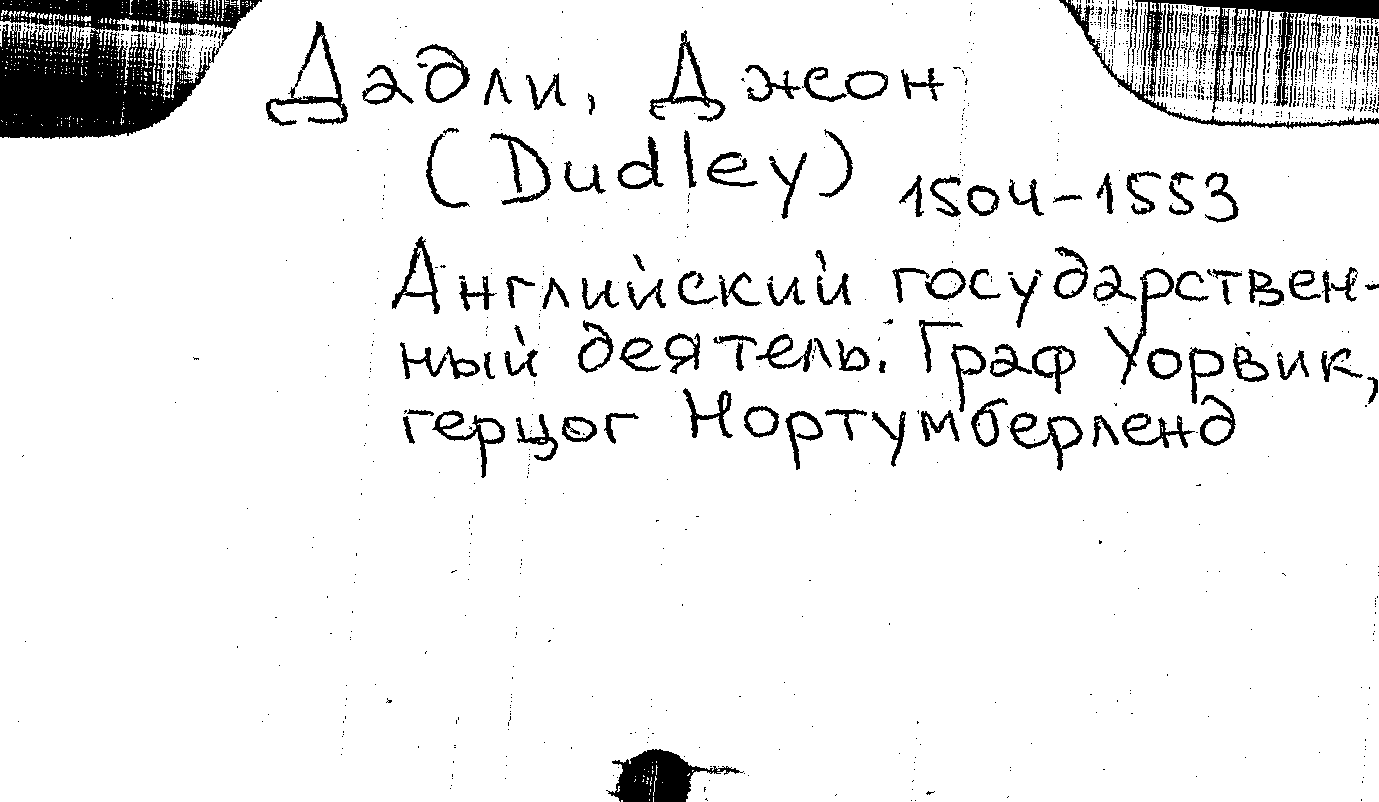 Дадли, Джон
(Dudley) 1504-1553
Английский государствен-
ный деятель. Граф Уорвик,
герцог Нортумберленд